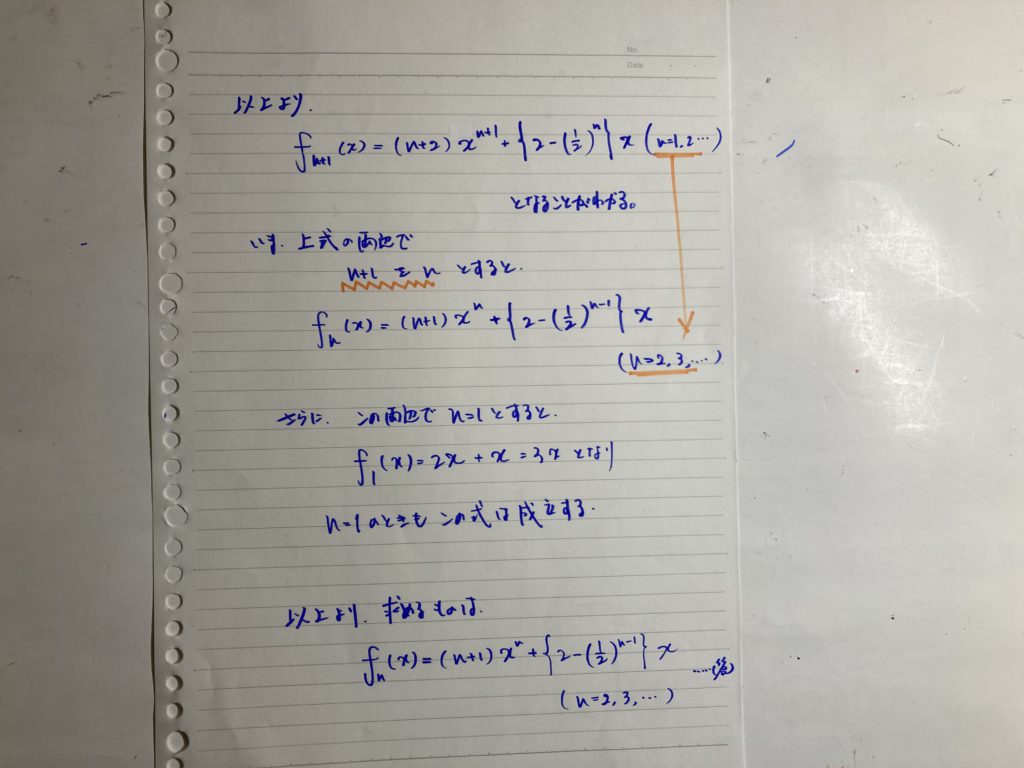 No.
Date
以上より.
f_{n+1}(x) = (n+2) x^{n+1} + {2-(1/2)^n} x (n=1,2…)
となることがわかる。
いま. 上式の両辺で
n+1 を n とすると.
f_n(x) = (n+1) x^n + {2-(1/2)^{n-1}} x
(n=2,3,….)
さらに. この両辺で n=1 とすると.
f_1(x) = 2x + x = 3x となり
n=1 のときも この式は 成立する.
以上より. 求めるものは.
f_n(x) = (n+1) x^n + {2-(1/2)^{n-1}} x ……(答)
(n=2,3,…)